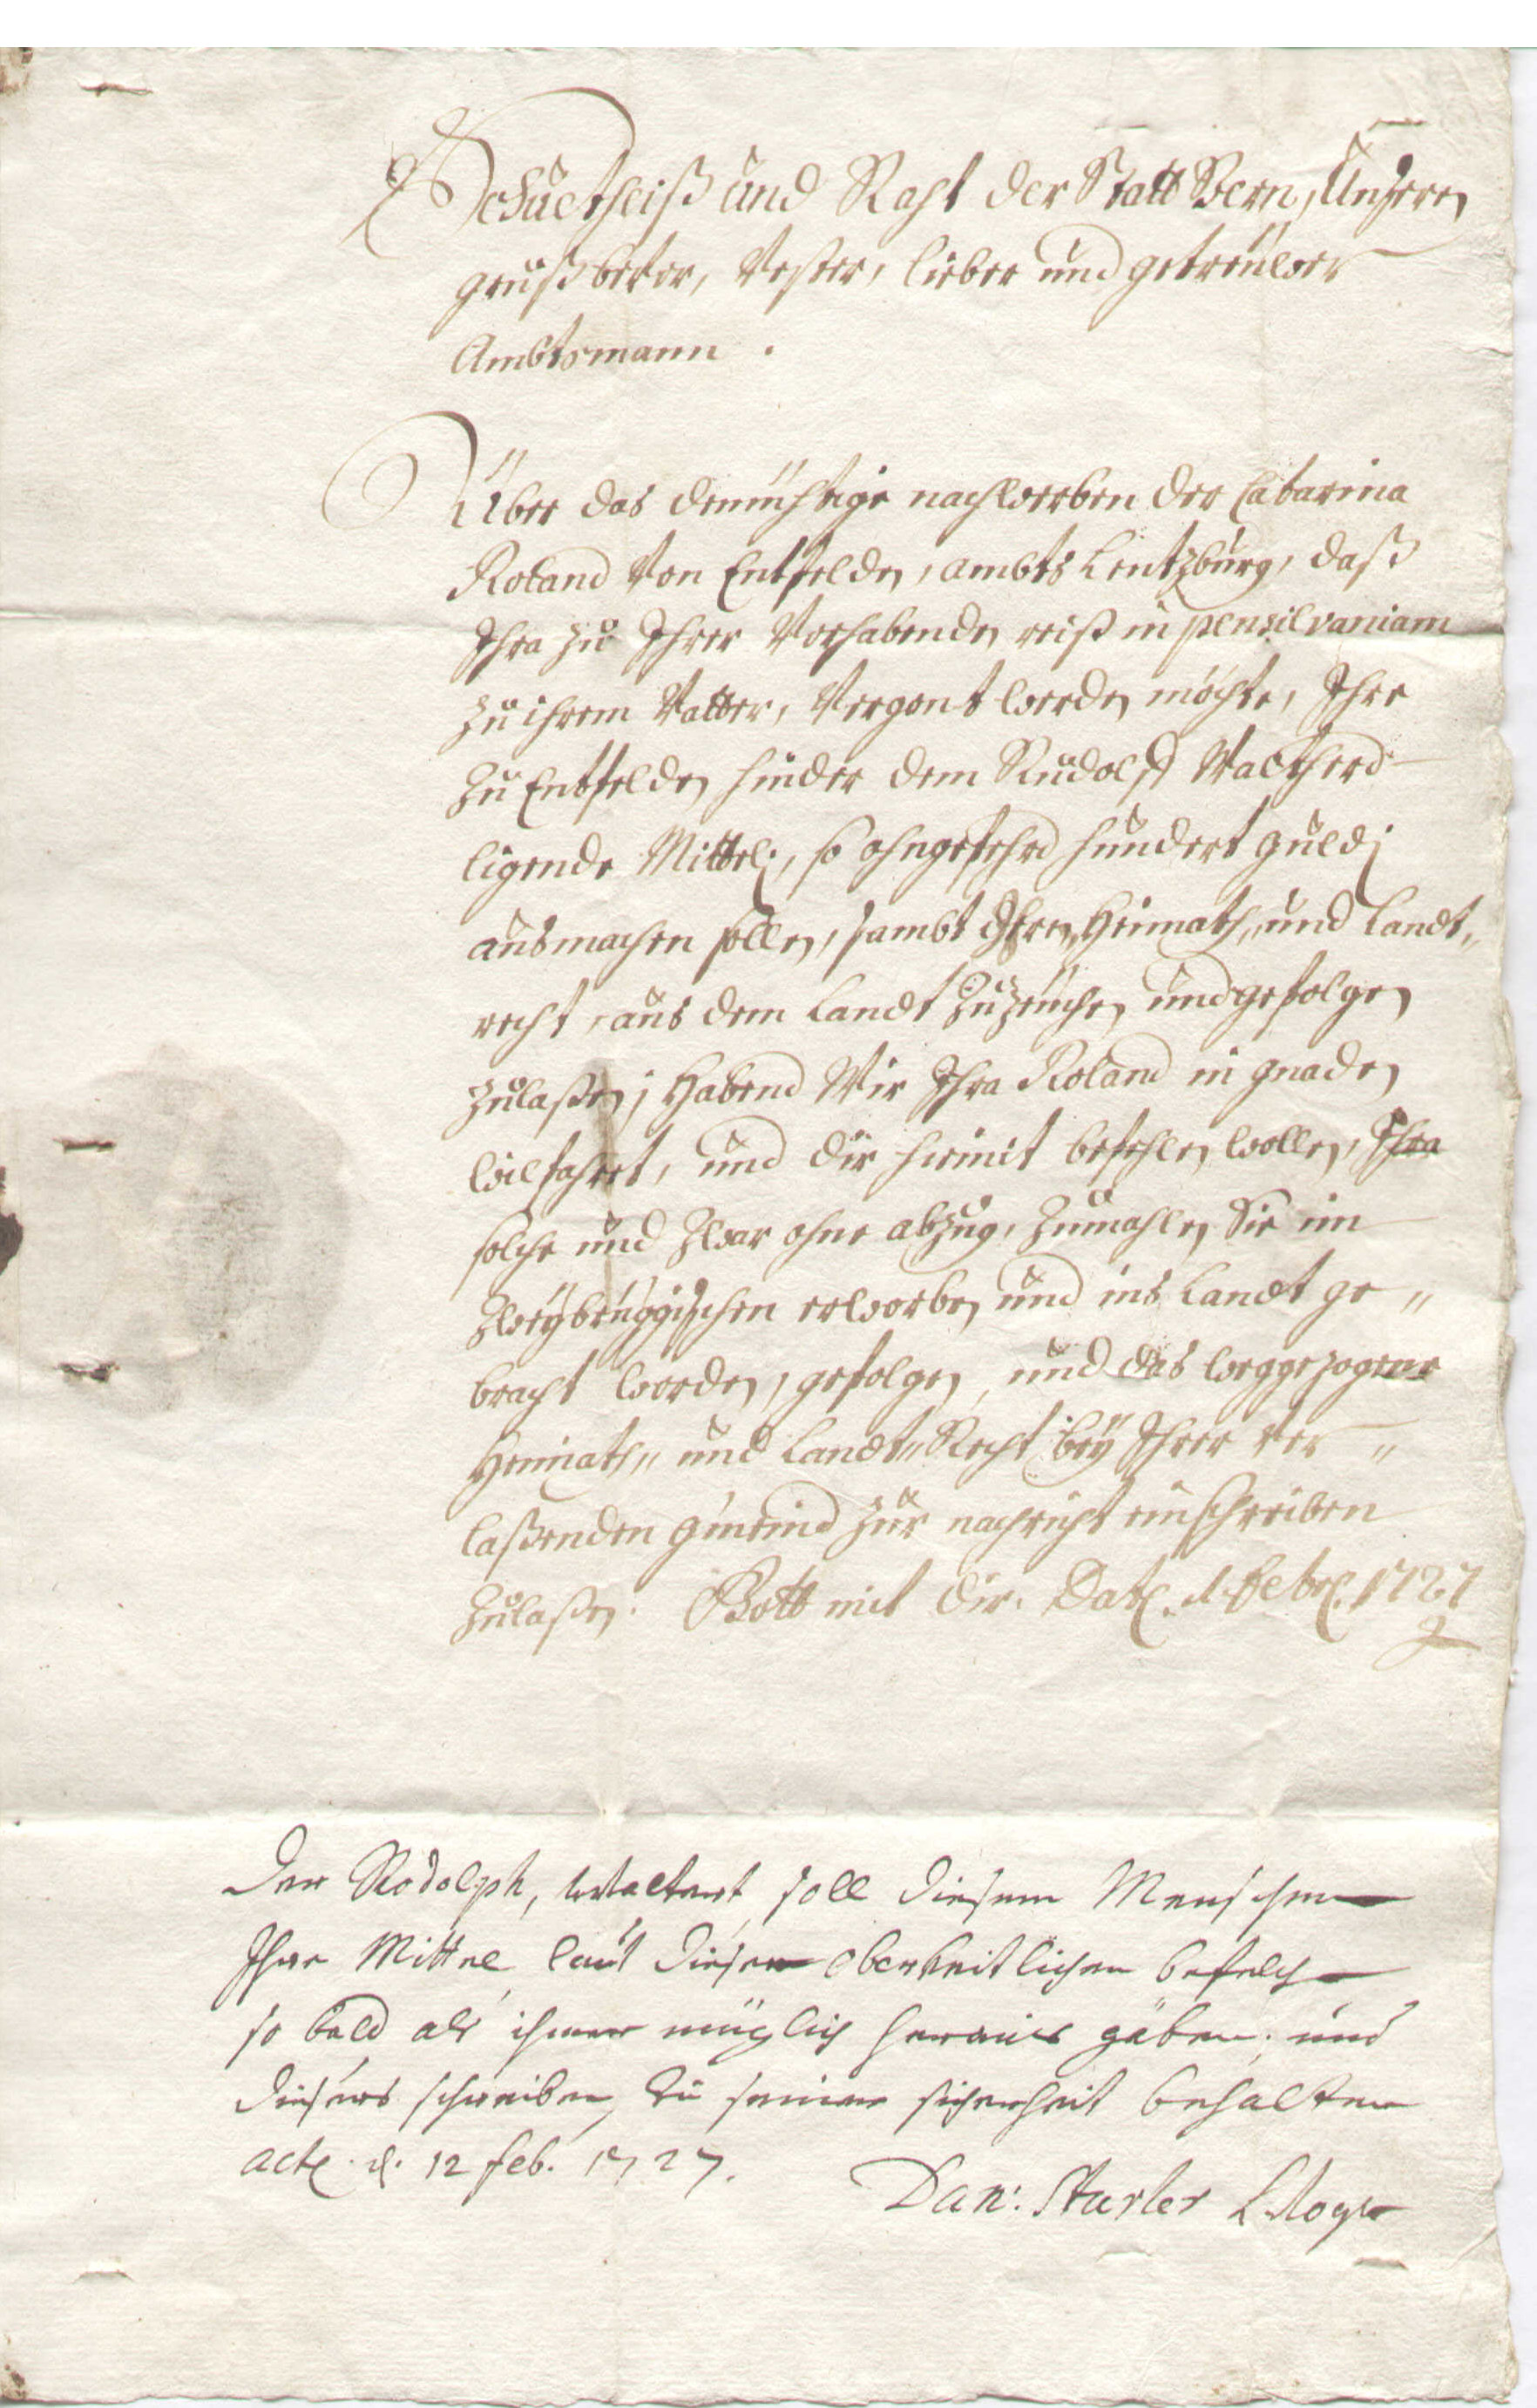 Schultheiß und Raht der Statt Bern, Unseren
gruß bevor, Vester, lieber und getreüwer
Ambtsmann.
Über das demühtige nachwerben der Catarina
Roland von Entfelden, ambts Lentzburg, daß
Ihra zu Ihrer Vorhabenden reiß in pensilvaniam
zu ihrem Vatter, Vergont werden möchte, Ihre
zu Entfelden hinder dem Rudolff Waltherd
ligende Mittel, so ohngefehrd hundert guld
ausmachen sollen, sambt Ihren Heimath„ und Landt„
recht, aus dem Landt zuzeüchen und gefolgen
zulaßen; Habend Wir Ihra Roland in gnaden
wilfahrt, und dir hiemit befehlen wollen, Ihra
solche und zwar ohne abzug, zumahlen Sie im
Zweÿbrüggischen erworben und ins Landt ge„
bracht worden, gefolgen, und das weggezogene
Heimath„ und Landt„Recht beÿ Ihrer ver„
laßenden gmeind zur nachricht einschreiben
zulaßen. Gott mit dir. Dat. d. Febr. 1727
Der Rodolph, Waltert soll diesem Menschen
Ihre Mittel laut diesem oberkeitlichen befelch
so bald als immer müglich heraus gäben, und
dieseres schreiben zu seiner sicherheit behalten
act. d. 12 feb. 1727.
Dan: Sturler